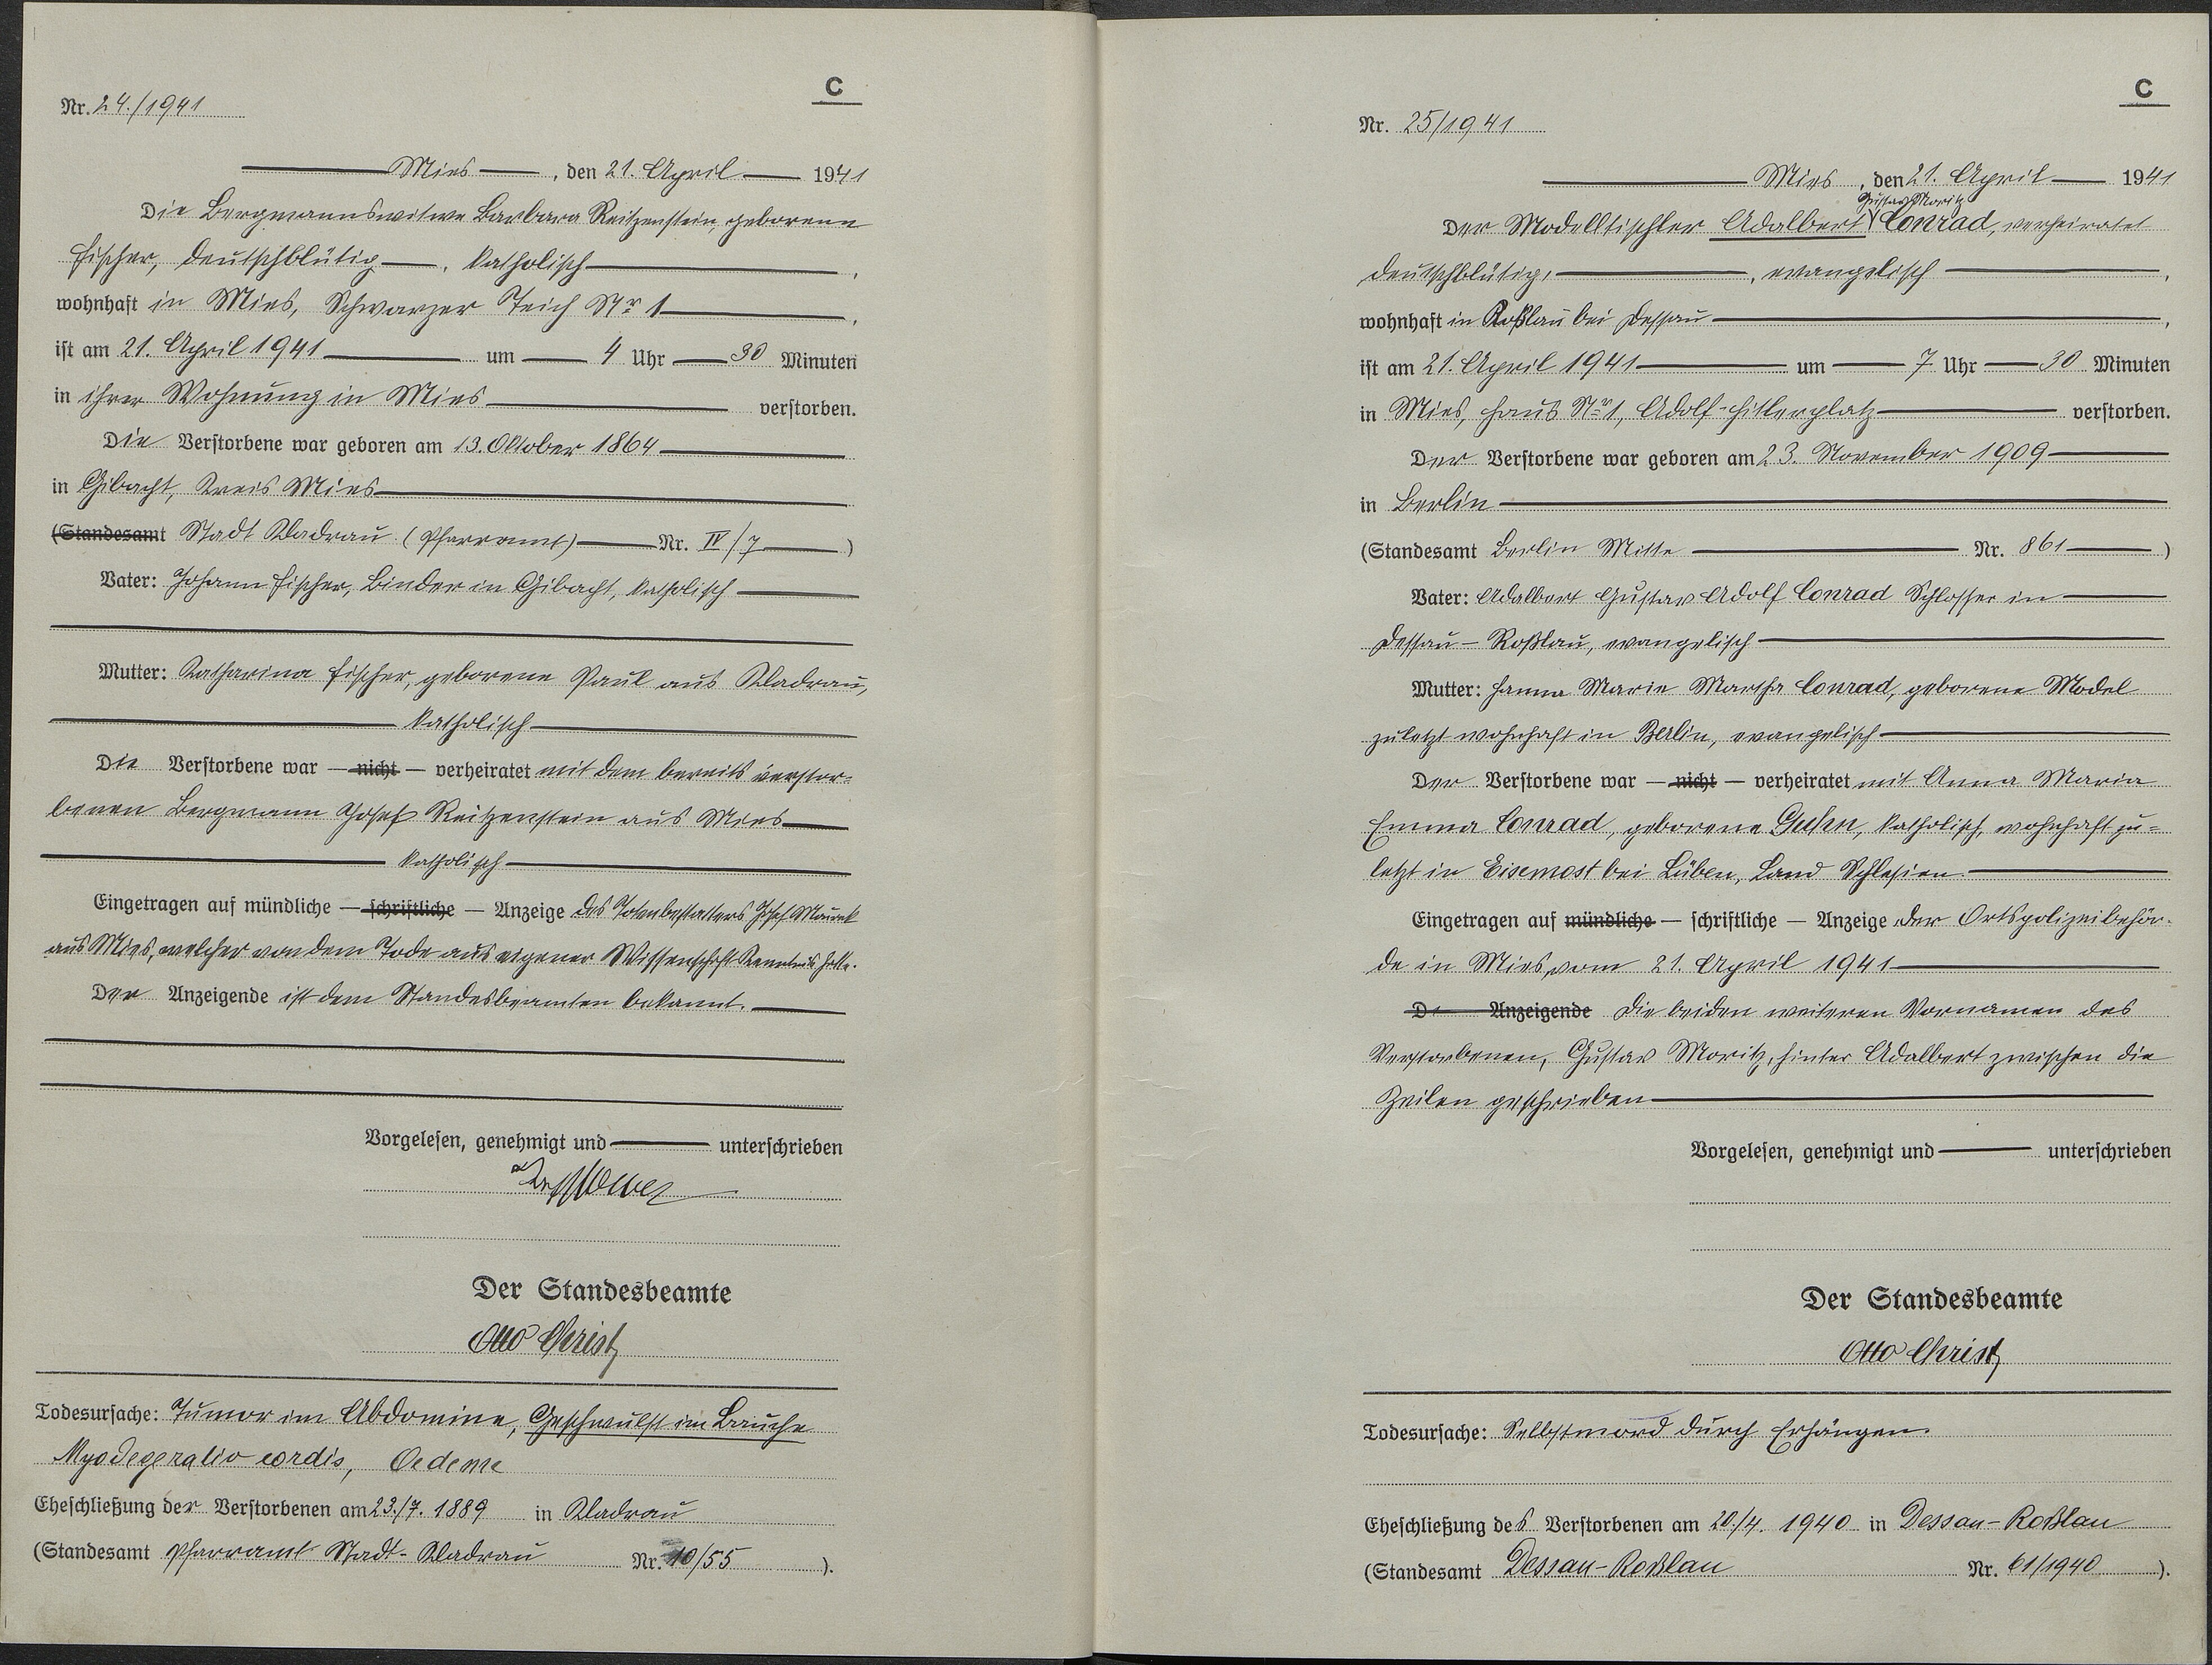 C
Nr. 24./1941
Mies, den 21. April 1941
Die Bergmannswitwe Barbara Reitzenstein, geborene
Fischer, deutschblütig, katholisch,
wohnhaft in Mies, Schwarzer Teich Nr 1,
ist am 21. April 1941 um 4 Uhr 30 Minuten
in ihrer Wohnung in Mies verstorben.
Die Verstorbene war geboren am 13. Oktober 1864
in Gibacht, Kreis Mies
(Standesamt Stadt Kladrau (Pfarramt) Nr. IV/7)
Vater: Johann Fischer, Binder in Gibacht, katholisch
Mutter: Katharina Fischer, geborene Paul aus Kladrau,
katholisch
Die Verstorbene war — nicht — verheiratet mit dem bereits verstor-
benen Bergmann Josef Reitzenstein aus Mies
katholisch
Eingetragen auf mündliche — schriftliche — Anzeige des Totenbestatters Josef
aus Mies, welcher von dem Tode aus eigener Wissenschaft Kenntnis hatte.
Der Anzeigende ist dem Standesbeamten bekannt.
Vorgelesen, genehmigt und unterschrieben
Der Standesbeamte
Otto Christ
Todesursache: Tumor im Abdomine, Geschwulst im Bauche
Myodegeratio cordis, Oedeme
Eheschließung der Verstorbenen am 23./7. 1889 in Kladrau
(Standesamt Pfarramt Stadt-Kladrau Nr. 10/55).
C
Nr. 25/1941
Mies, den 21. April 1941
Gustav Moritz
Der Modelltischler Adalbert Conrad, verheiratet
deutschblütig, evangelisch,
wohnhaft in Roßlau bei Dessau,
ist am 21. April 1941 um 7 Uhr 30 Minuten
in Mies, Haus Nr 1, Adolf-Hitlerplatz verstorben.
Der Verstorbene war geboren am 23. November 1909
in Berlin
(Standesamt Berlin Mitte Nr. 861)
Vater: Adalbert Gustav Adolf Conrad Schlosser in
Dessau-Roßlau, evangelisch
Mutter: Hanna Marie Martha Conrad, geborene Model
zuletzt wohnhaft in Berlin, evangelisch
Der Verstorbene war — nicht — verheiratet mit Anna Maria
Emma Conrad, geborene Guhn, katholisch, wohnhaft zu-
letzt in Eisemost bei Lüben, Land Schlesien.
Eingetragen auf mündliche — schriftliche — Anzeige der Ortspolizeibehör-
de in Mies vom 21. April 1941
D Anzeigende Die beiden weiteren Vornamen des
Verstorbenen, Gustav Moritz, hinter Adalbert zwischen die
Zeilen geschrieben
Vorgelesen, genehmigt und unterschrieben
Der Standesbeamte
Otto Christ
Todesursache: Selbstmord durch Erhängen.
Eheschließung des Verstorbenen am 20./4. 1940 in Dessau-Roßlau
(Standesamt Dessau-Roßlau Nr. 61/1940).